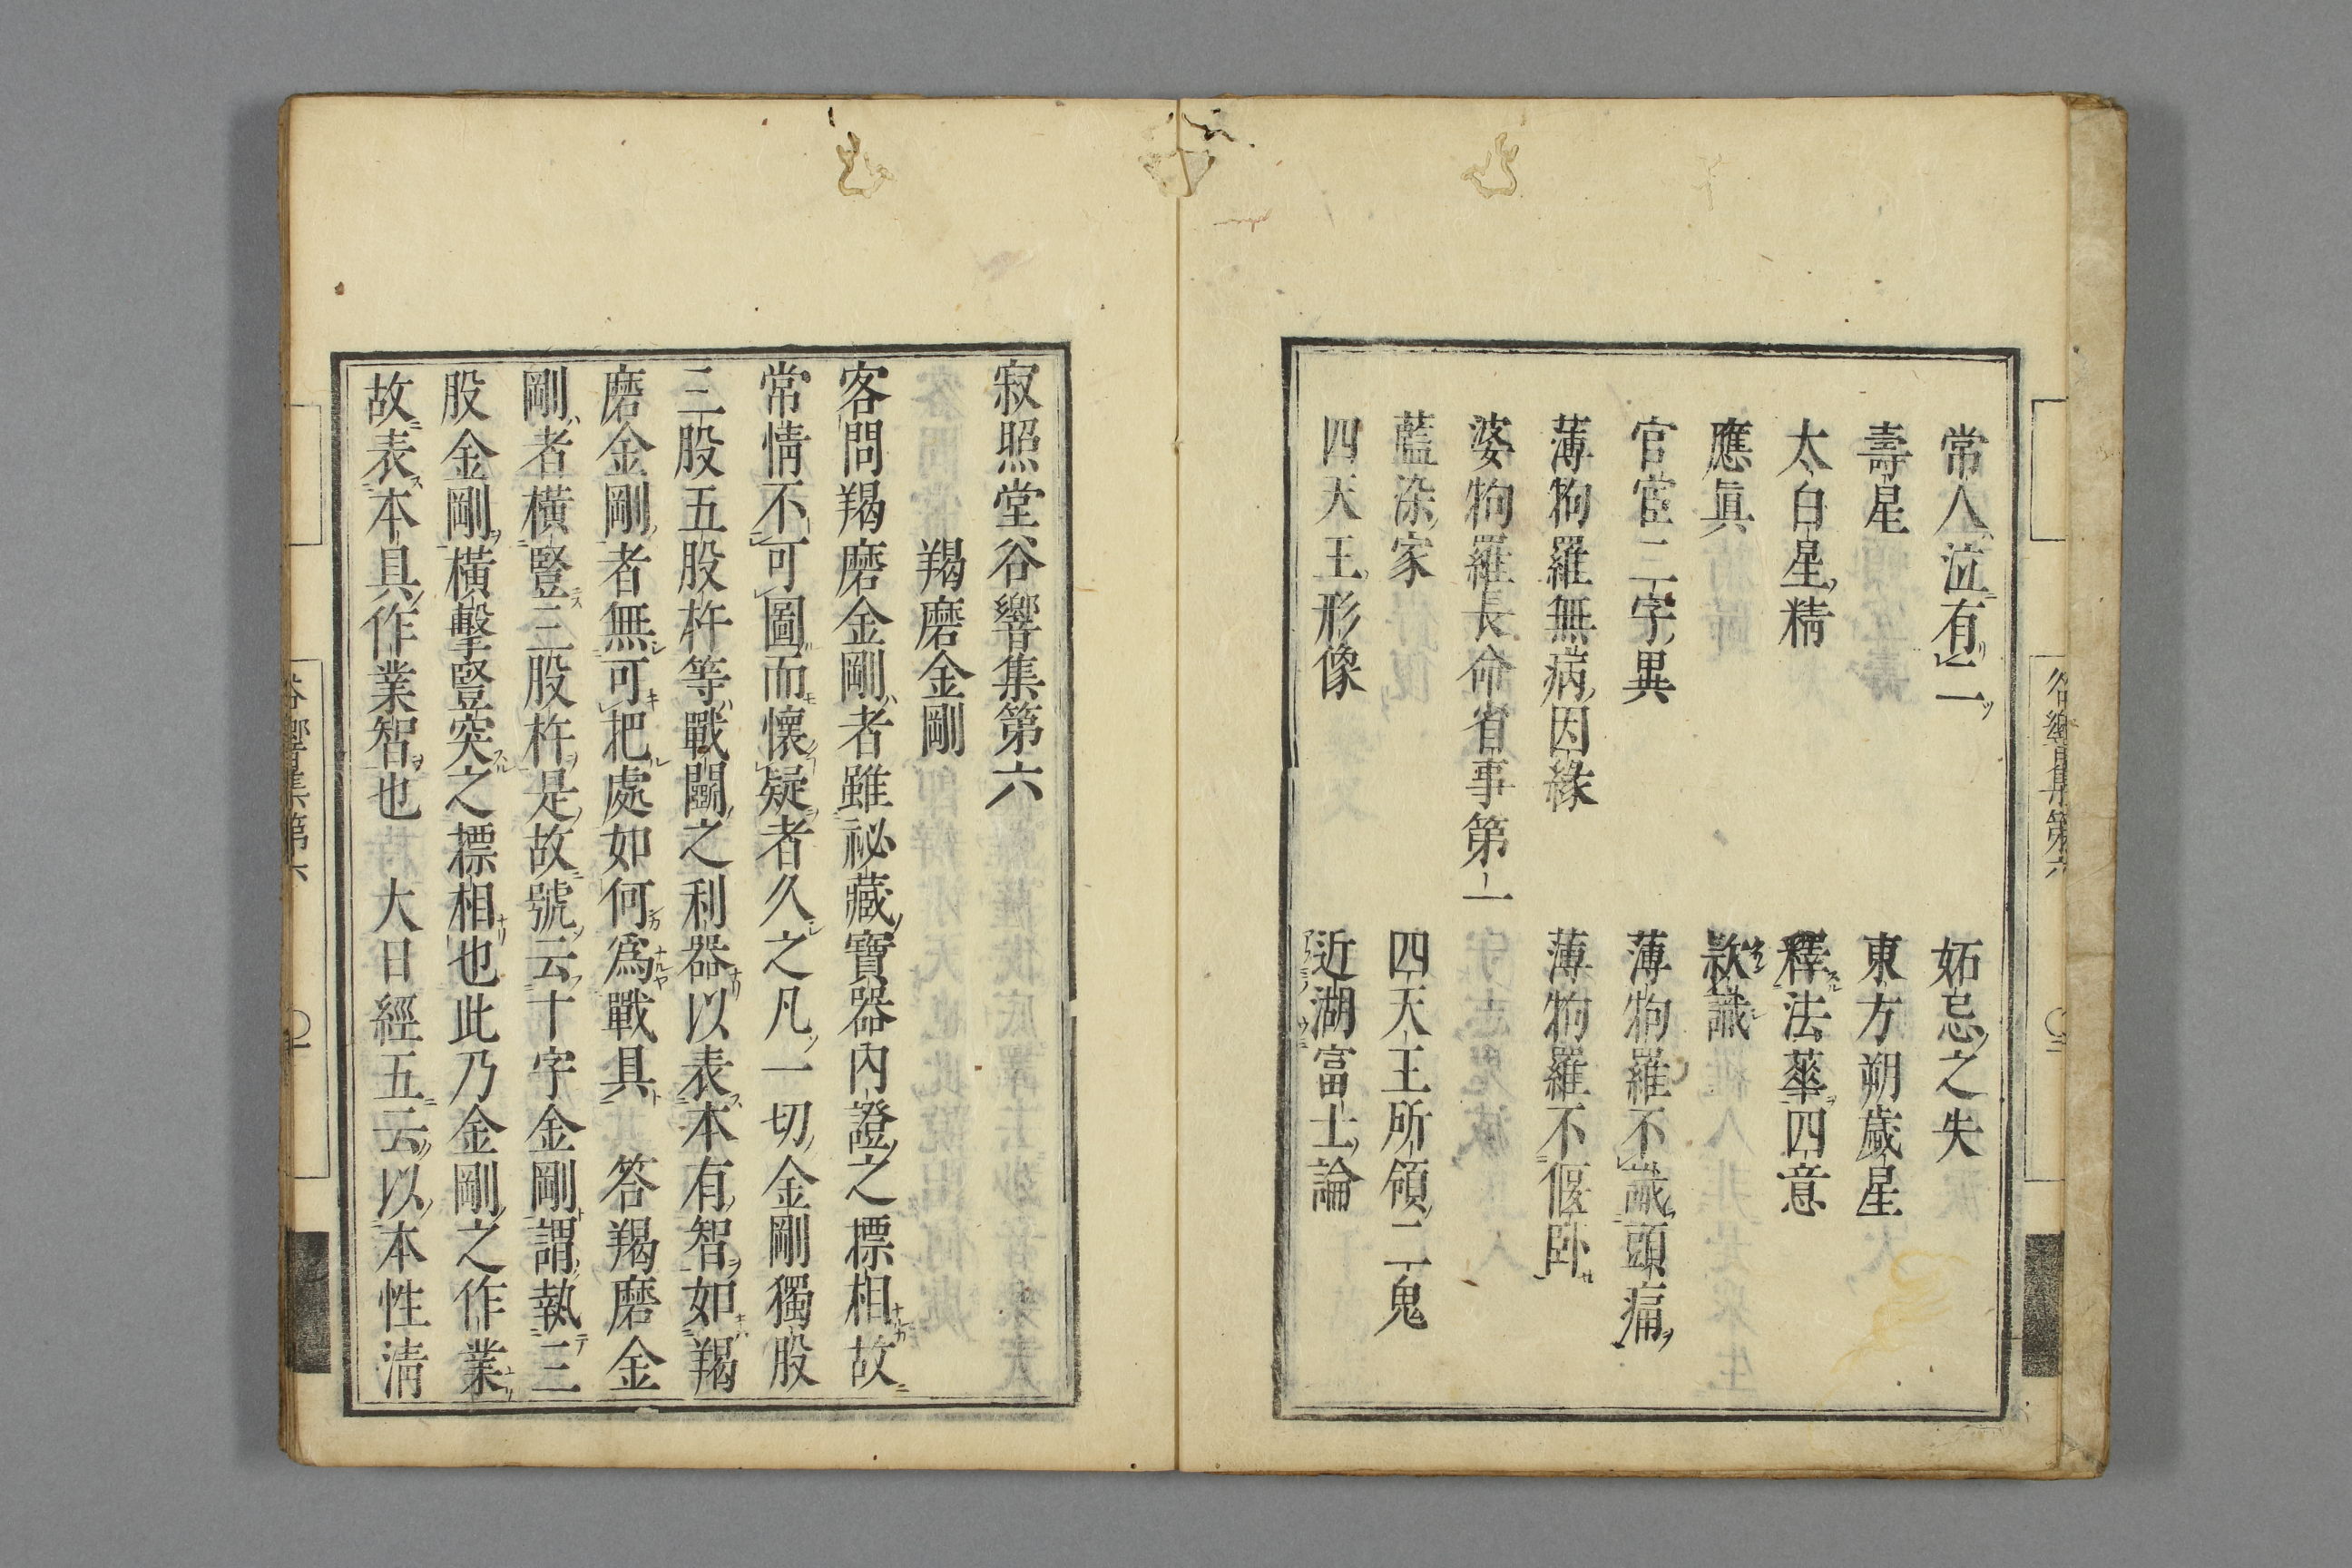 常人泣有二
妬忌之失
壽星
東方朔歳星
太白星精
釋法華四意
應眞
歎識
官宦二字異
薄狗羅不識頭痛
薄狗羅無病因緣
薄狗羅不偃卧
婆狗羅長命省事第一
藍染家
四天王所領二鬼
四天王形像
近湖富士論
寂照堂谷響集第六
羯磨金剛
客問羯磨金剛者雖祕藏寶器內證之標相故
常情不可圖而懷疑者久之凡一切金剛獨股
三股五股杵等戰鬭之利器以表本有智如羯
磨金剛者無可把處如何爲戰具 答羯磨金
剛者橫豎三股杵是故號云十字金剛謂執三
股金剛橫擊豎突之標相也此乃金剛之作業
故表本具作業智也 大日經五云以本性淸
谷響集第六